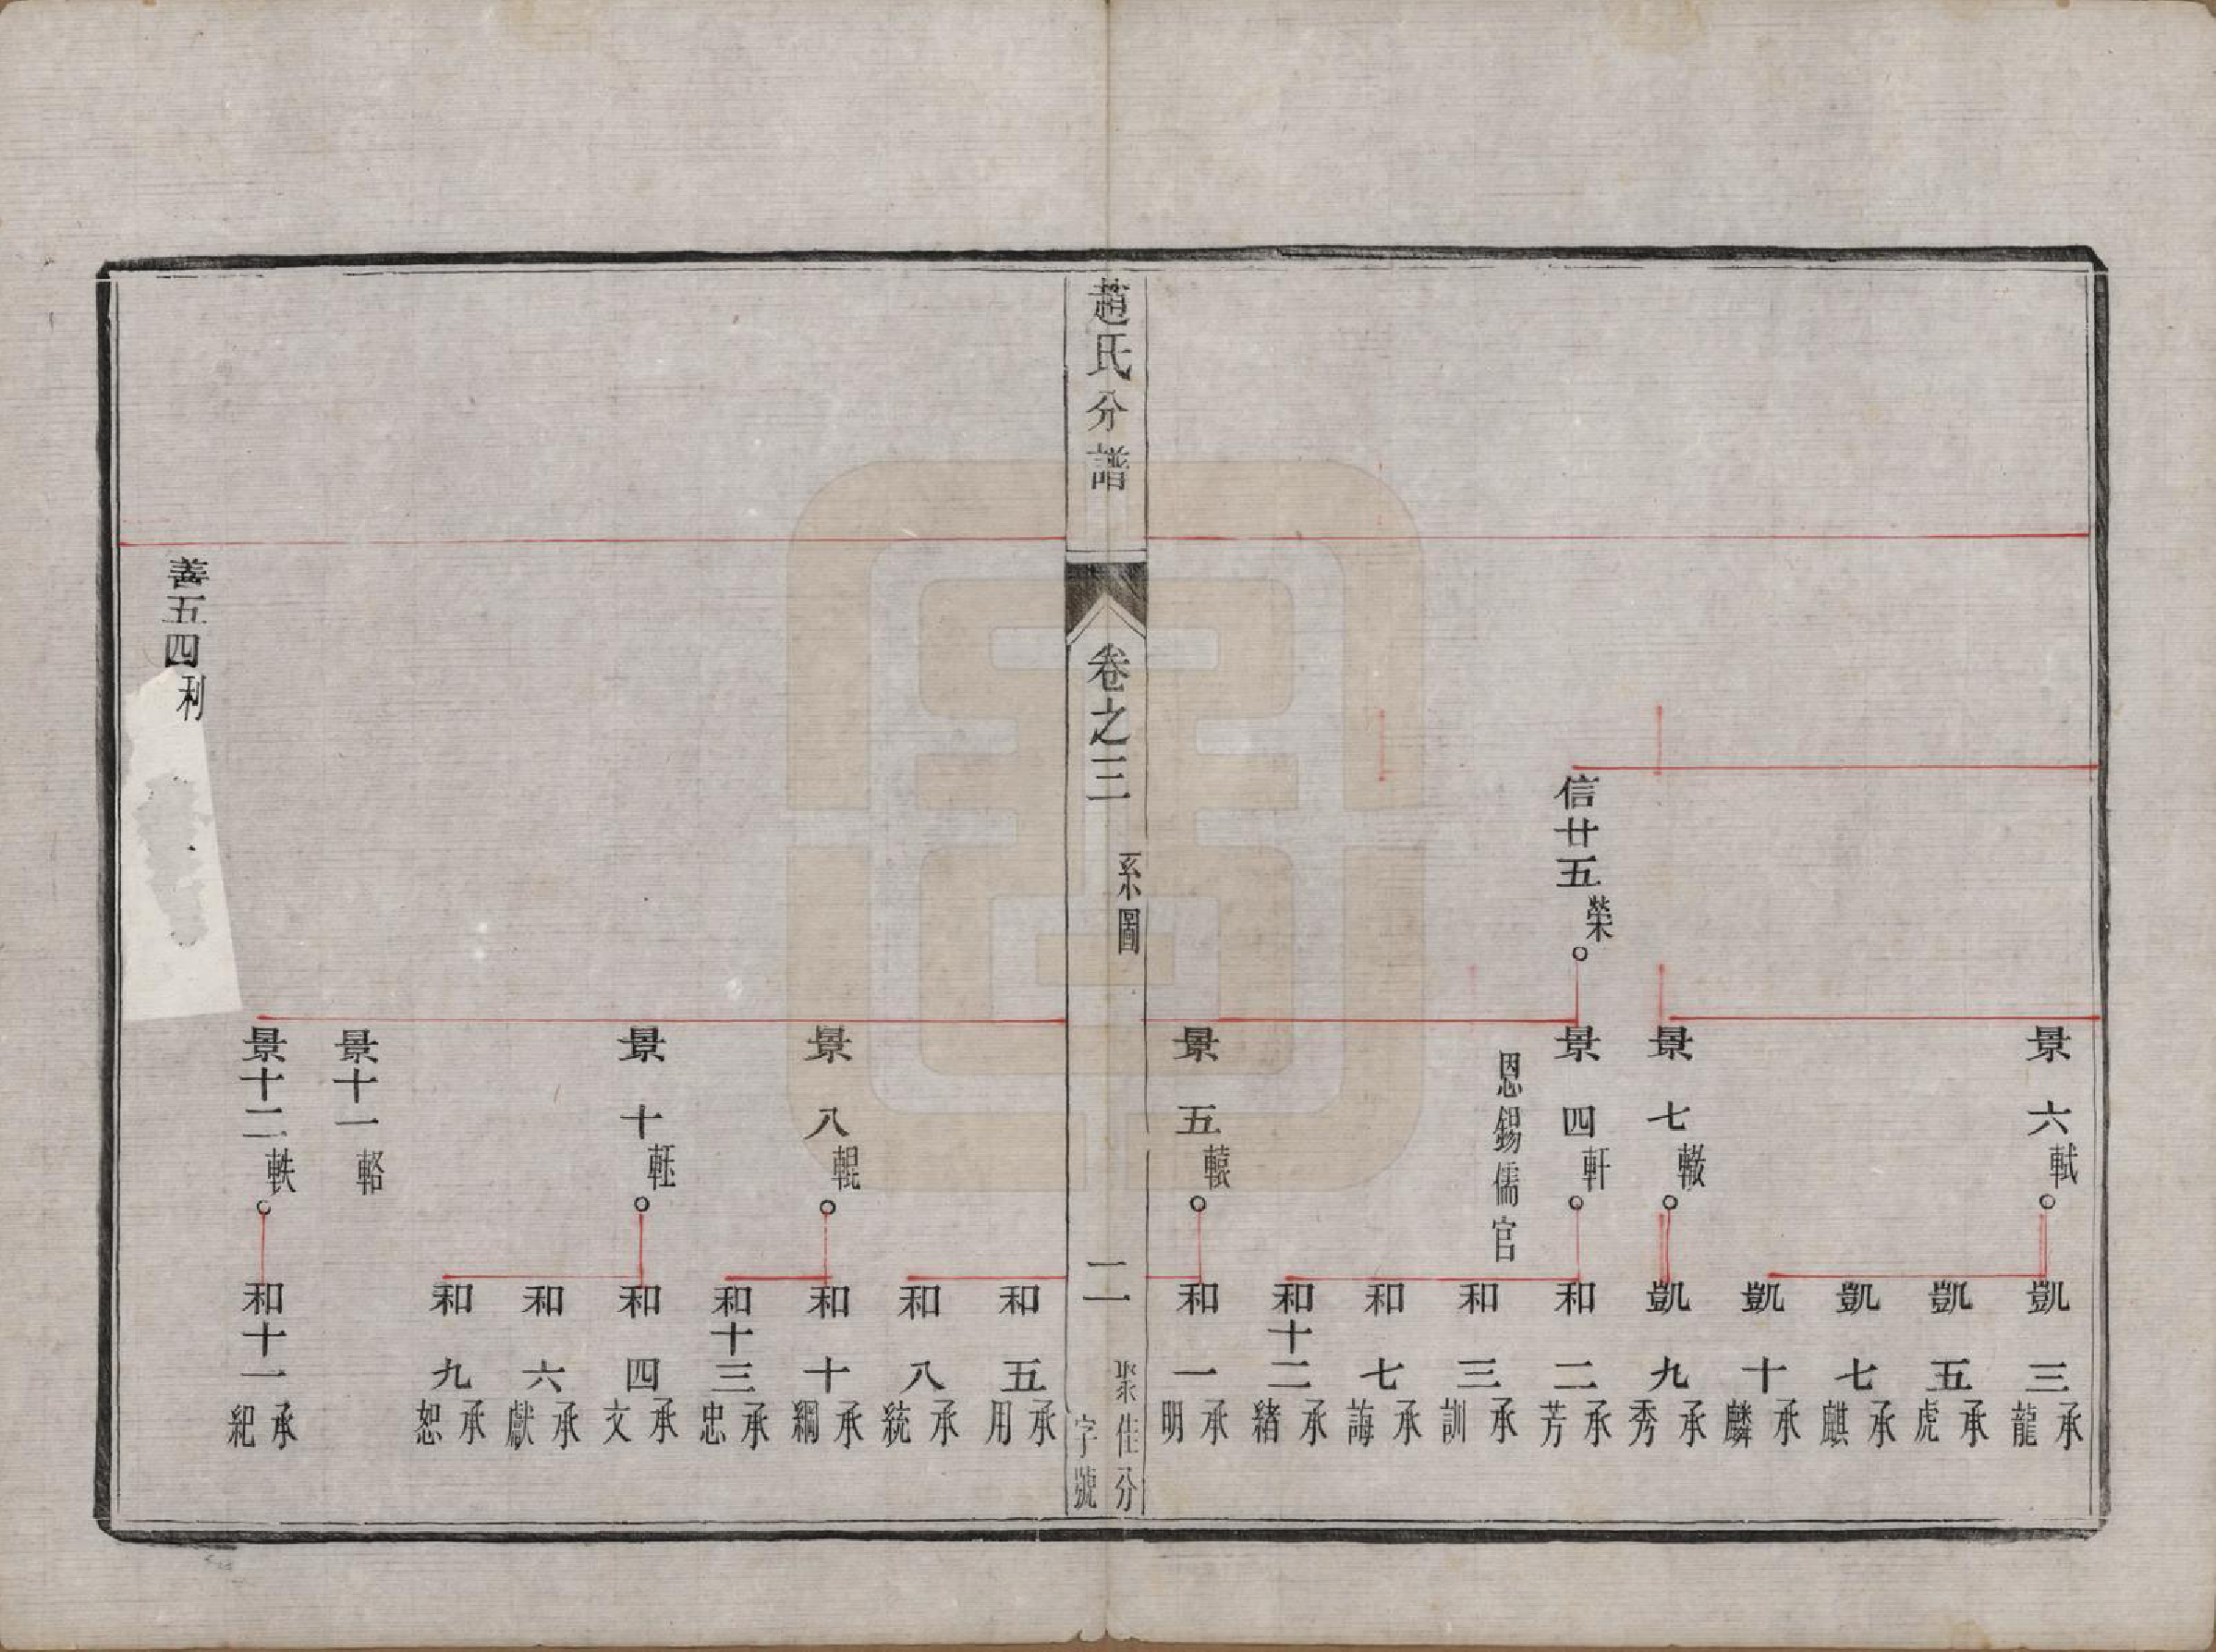 景六軾
凱三承龍
凱五承虎
凱七承麒
凱十承麟
景七轍
凱九承秀
信廿五榮
景四軒
恩錫儒官
和二承芳
和三承訓
和七承誨
和十二承緒
景五轅
和一承明
趙氏分譜
卷之三
系圖
二
聚佳分
字號
和五承用
和八承統
景八輥
和十承綱
和十三承忠
景十軠
和四承文
和六承獻
和九承恕
景十一輅
景十二軼
和十一承紀
善五四利